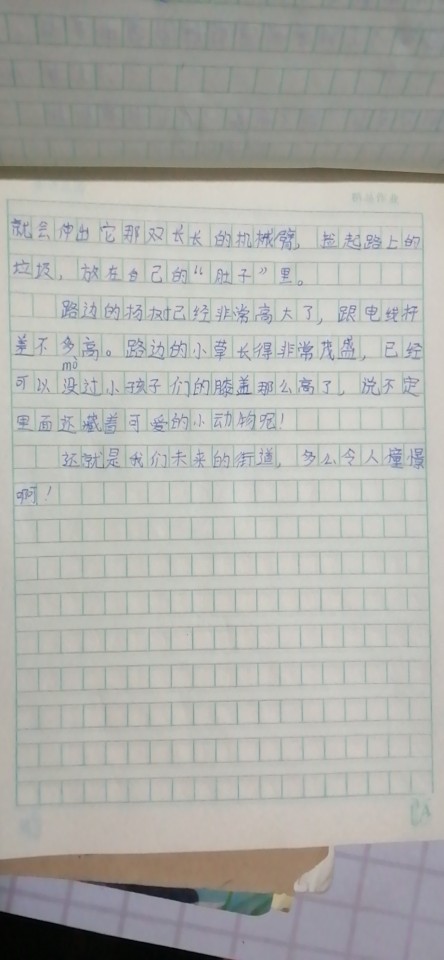 就会伸出它那双长长的机械臂，捡起路上的
垃圾，放在自己的“肚子”里。
路边的杨树已经非常高大了，跟电线杆
差不多高。路边的小草长得非常茂盛，已经
mò
可以没过小孩子们的膝盖那么高了，说不定
里面还藏着可爱的小动物呢！
这就是我们未来的街道，多么令人憧憬
啊！